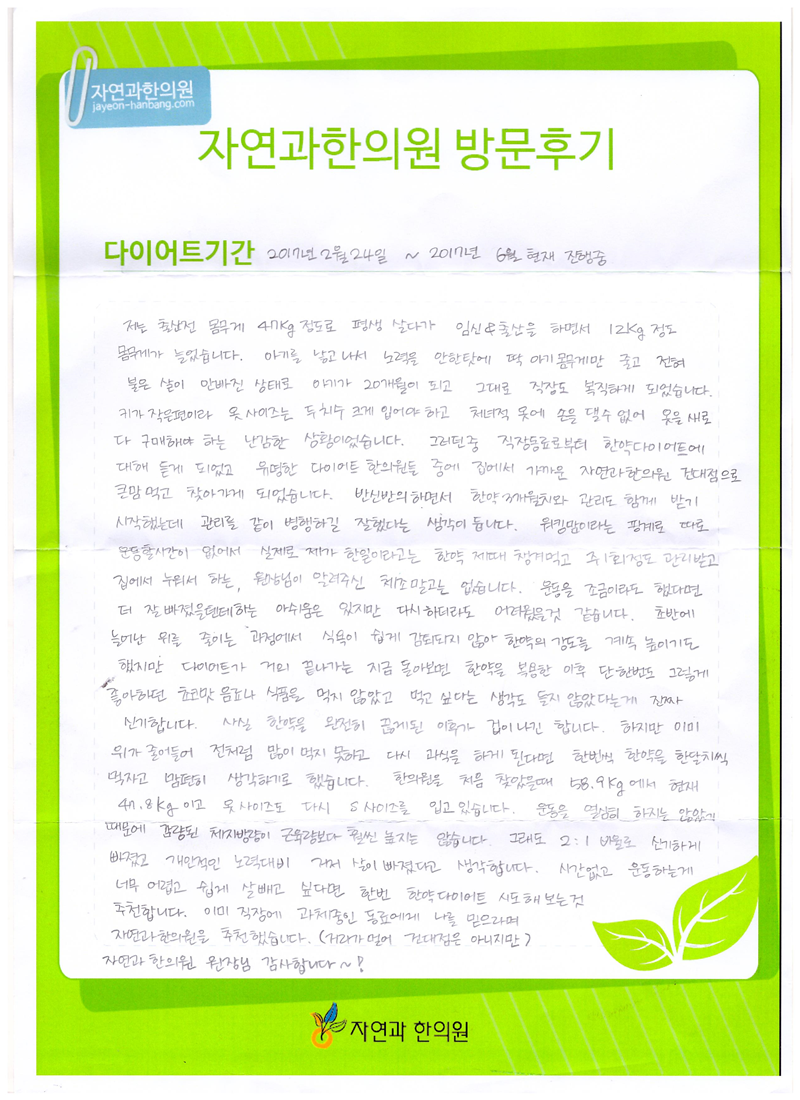 자연과한의원
jayeon-hanbang.com
자연과한의원 방문후기
다이어트기간 2017년 2월 24일 ~ 2017년 6월 현재 진행중
저는 출산전 몸무게 47kg 정도로 평생 살다가 임신&출산을 하면서 12kg 정도
몸무게가 늘었습니다. 아기를 낳고 나서 노력을 안한탓에 딱 아기 몸무게만 줄고 전혀
붙은 살이 안빠진 상태로 아기가 20개월이 되고 그대로 직장도 복직하게 되었습니다.
키가 작은편이라 옷 사이즈는 두치수 크게 입어야 하고 처녀적 옷에 손을 댈수 없어 옷을 새로
다 구매해야 하는 난감한 상황이었습니다. 그러던중 직장동료로부터 한약다이어트에
대해 듣게 되었고 유명한 다이어트 한의원들 중에 집에서 가까운 자연과한의원 건대점으로
큰맘 먹고 찾아가게 되었습니다. 반신반의 하면서 한약 3개월치와 관리도 함께 받기
시작했는데 관리를 같이 병행하길 잘했다는 생각이 듭니다. 워킹맘이라는 핑계로 따로
운동할시간이 없어서 실제로 제가 한일이라고는 한약 제때 챙겨먹고 주1회정도 관리받고
집에서 누워서 하는, 원장님이 알려주신 체조말고는 없습니다. 운동을 조금이라도 했다면
더 잘 빠졌을텐데하는 아쉬움은 있지만 다시 하더라도 어려웠을것 같습니다. 초반에
늘어난 위를 줄이는 과정에서 식욕이 쉽게 감퇴되지 않아 한약의 강도를 계속 높이기도
했지만 다이어트가 거의 끝나가는 지금 돌아보면 한약을 복용한 이후 단한번도 그렇게
좋아하던 초코맛 음료나 식품을 먹지 않았고 먹고 싶다는 생각도 들지 않았다는게 진짜
신기합니다. 사실 한약을 완전히 끊게된 이후가 겁이나긴 합니다. 하지만 이미
위가 줄어들어 전처럼 많이 먹지 못하고 다시 과식을 하게 된다면 한번씩 한약을 한달치씩
먹자고 맘편히 생각하기로 했습니다. 한의원을 처음 찾았을때 58.9kg 에서 현재
47.8kg 이고 옷 사이즈도 다시 S 사이즈를 입고 있습니다. 운동을 열심히 하지는 않았기
때문에 감량된 체지방량이 근육량보다 훨씬 높지는 않습니다. 그래도 2:1 비율로 신기하게
빠졌고 개인적인 노력대비 거저 살이 빠졌다고 생각합니다. 시간없고 운동하는게
너무 어렵고 쉽게 살빼고 싶다면 한번 한약다이어트 시도해 보는것
추천합니다. 이미 직장에 과체중인 동료에게 나를 믿으라며
자연과한의원을 추천했습니다. (거리가 멀어 건대점은 아니지만)
자연과 한의원 원장님 감사합니다~!
자연과 한의원